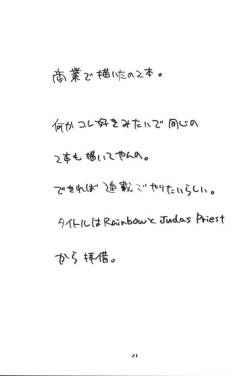 商業で描いたの2本。
何かコレ好きみたいで同じの
2本も描いてやんの。
できれば連載でやりたいらしい。
タイトルはRainbowとJudas Priest
から拝借。
23